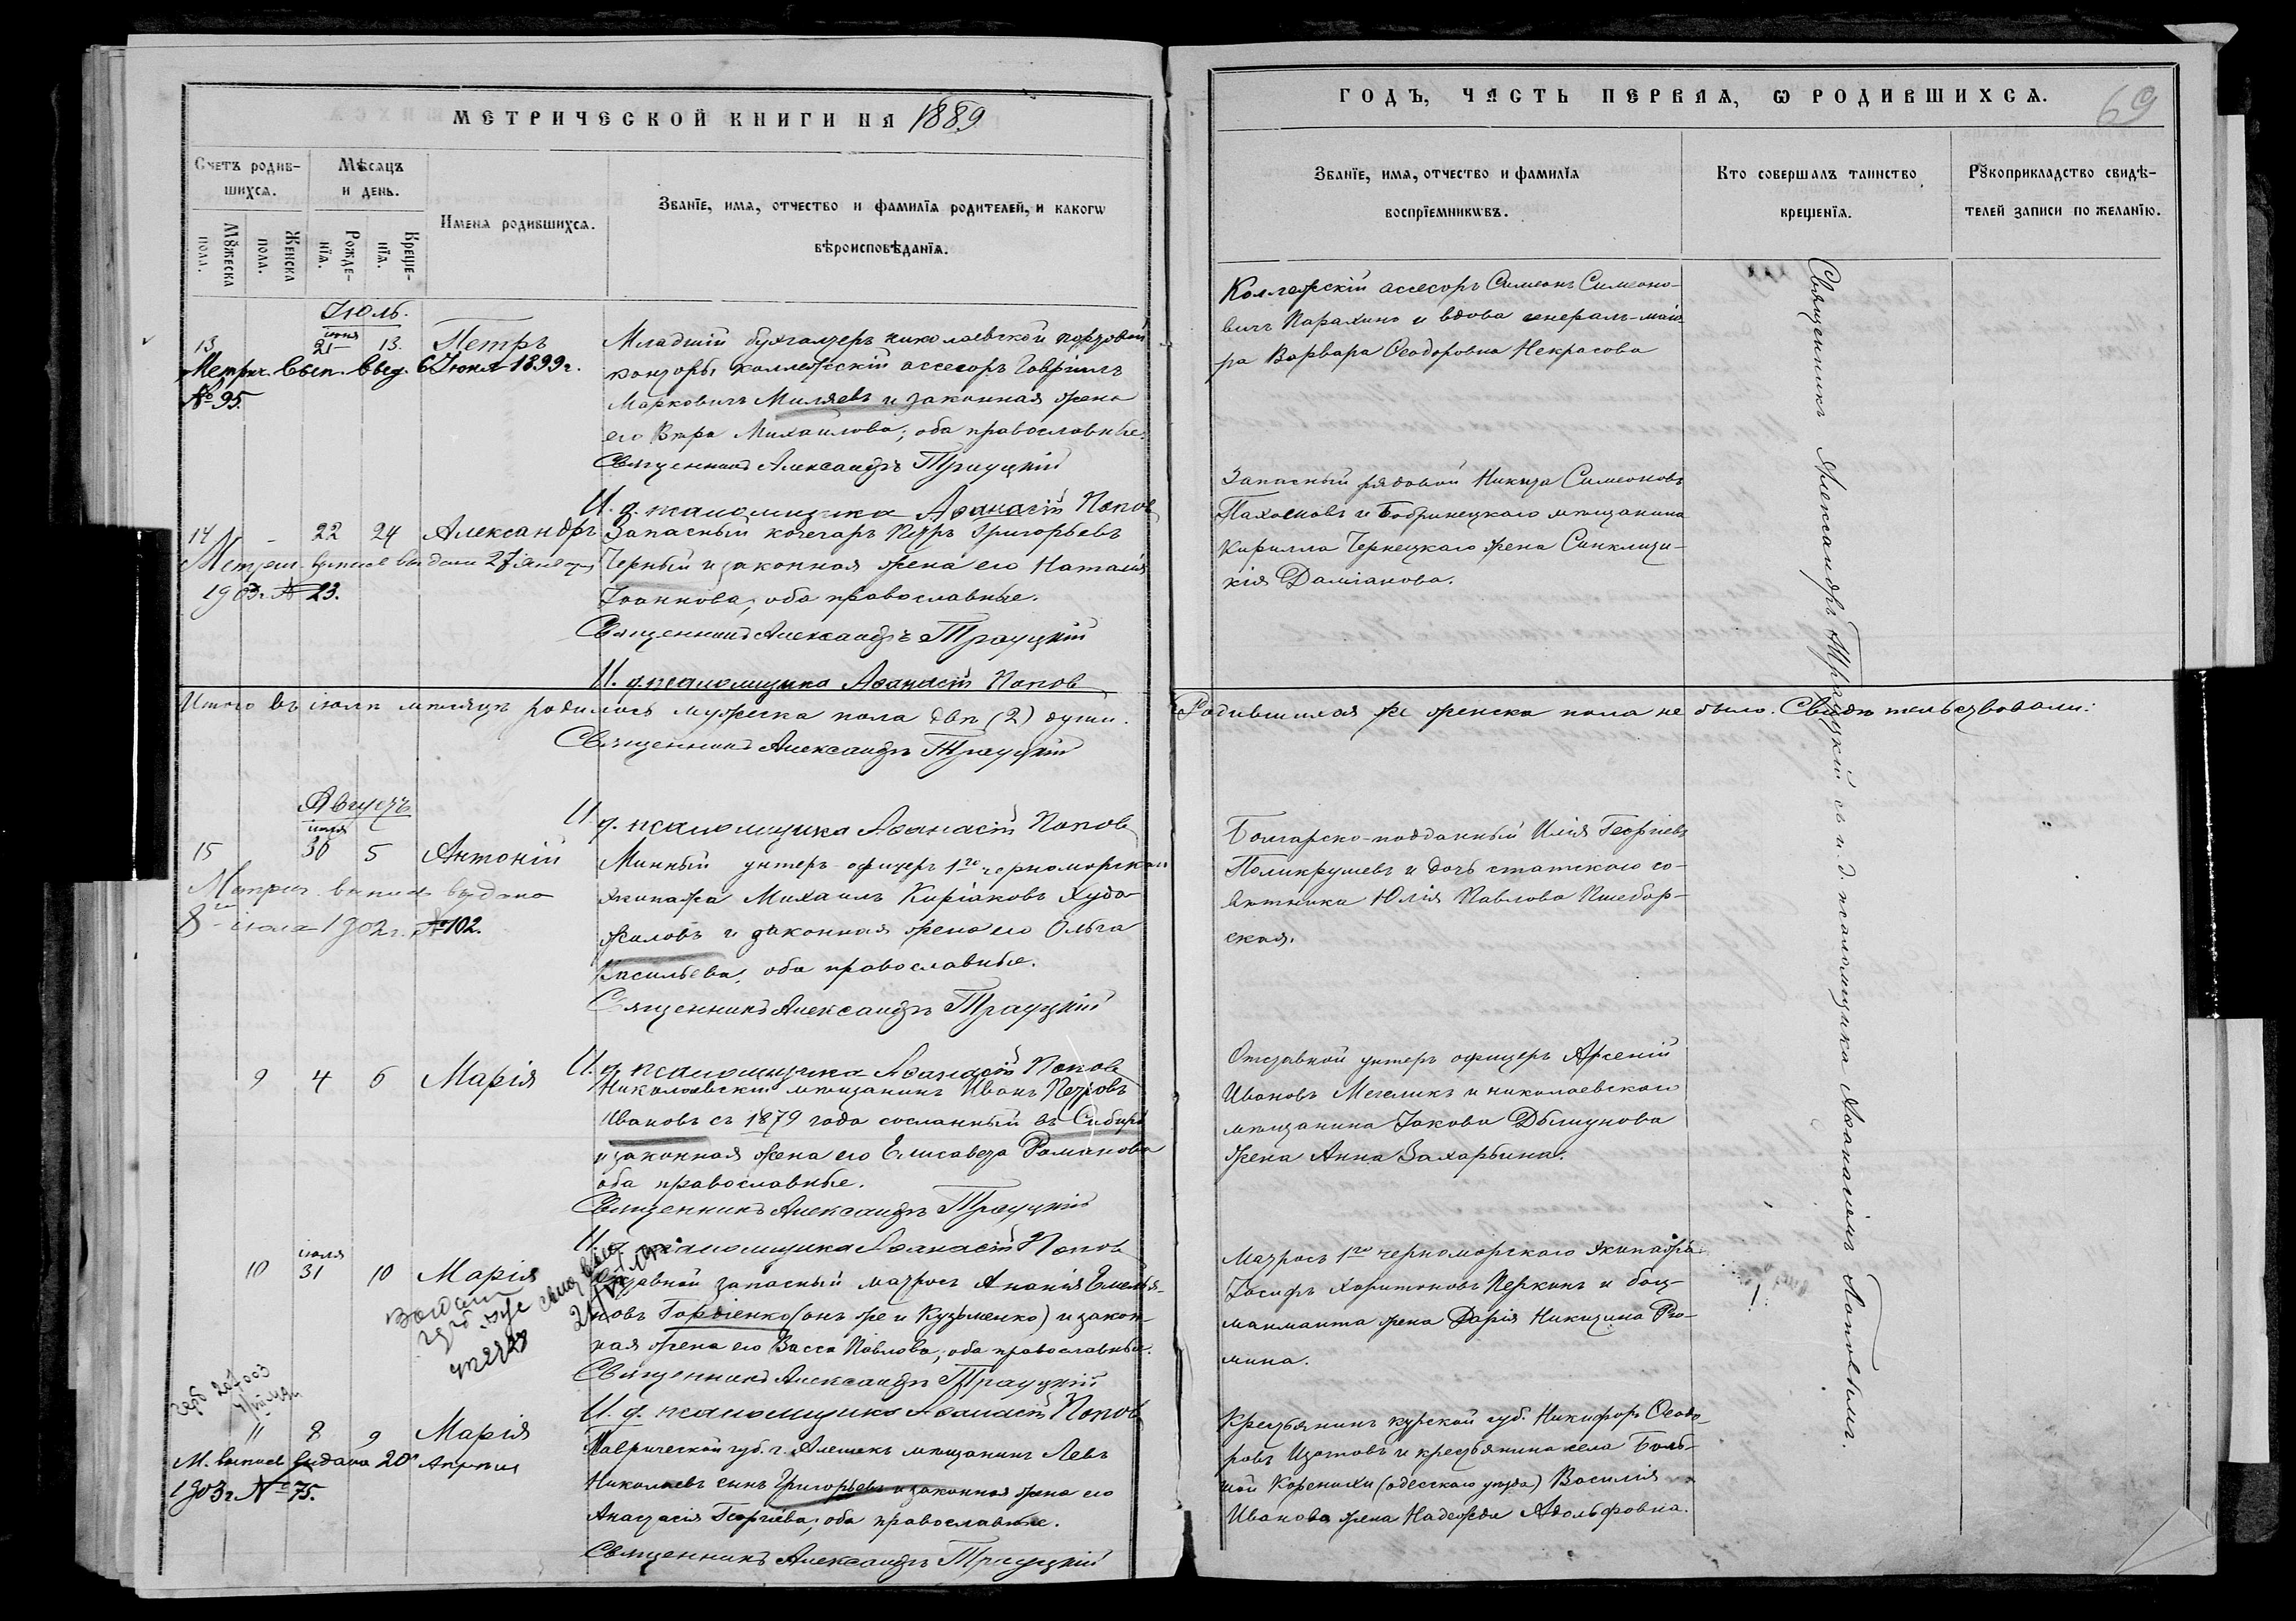 МЕТРИЧЕСКОЙ КНИГИ НА 1889
Счетъ родив-
шихся.
Мѣсяцъ
и день.
Мужеска
пола.
Женска
пола.
Рожде-
нія.
Креще-
нія.
Имена родившихся.
Званіе, имя, отчество и фамилія родителей, и какогѡ
вѣроисповѣданія.
Іюль.
13
іюня
21
13.
Петръ
Метрич. вып. выд. 6 Іюня 1899 г.
№ 95.
Младшій бухгалтеръ николаевской портовой
конторы коллежскій ассесоръ Гавріилъ
Марковичъ Миляевъ и законная жена
его Вѣра Михайлова; оба православные.
Священникъ Александръ Трауцкій
И. д. псаломщика Аѳанасій Поповъ
14
-
22
24
Александръ
Метрич. выпись выдана 27 января
1903 г. № 23.
Запасный кочегаръ Петръ Григорьевъ
Черный и законная жена его Наталія
Іоаннова; оба православные.
Священникъ Александръ Трауцкій
И. д. псаломщика Аѳанасій Поповъ
Итого въ іюлѣ мѣсяцѣ родилось мужеска пола двѣ (2) души.
Священникъ Александръ Трауцкій
Августъ
И. д. псаломщика Аѳанасій Поповъ
15
іюля
30
5
Антоній
Метрич. выпись выдана
8го іюля 1902 г. № 102.
Минный унтеръ-офицеръ 1го черноморскаго
экипажа Михаилъ Киріаковъ Худо-
жиловъ и законная жена его Ольга
Васильева; оба православные.
Священникъ Александръ Трауцкій
И. д. псаломщика Аѳанасій Поповъ
9
4
6
Марія
Николаевскій мѣщанинъ Иванъ Петровъ
Ивановъ съ 1879 года сосланный въ Сибирь
и законная жена его Елисавета Романова
оба православные.
Священникъ Александръ Трауцкій
И. д. псаломщика Аѳанасій Поповъ
10
іюля
31
10
Марія
запасный матросъ Ананія Емелья-
новъ Гордіенко (онъ же и Кузьменко) и закон-
ная жена его Васса Павлова; оба православные.
Священникъ Александръ Трауцкій
И. д. псаломщика Аѳанасій Поповъ
11
8
9
Марія
М. выпись выдана 20 Апрѣля
1903 г. № 75.
Таврической губ. г. Алешекъ мѣщанинъ Левъ
Николаевъ сынъ Григорьевъ и законная жена его
Анастасія Георгіева; оба православные.
Священникъ Александръ Трауцкій
ГОДЪ, ЧАСТЬ ПЕРВАЯ, Ѡ РОДИВШИХСЯ.
69
Званіе, имя, отчество и фамилія
воспріемникѡвъ.
Кто совершалъ таинство
крещенія.
Рукоприкладство свидѣ-
телей записи по желанію.
Коллежскій ассесоръ Симеонъ Симеоно-
вичъ Парахинъ и вдова генералъ-маіо-
ра Варвара Ѳеодоровна Некрасова
Запасный рядовой Никита Симеоновъ
и Бобринецкаго мѣщанина
Кирилла Чернецкаго жена Синклити-
кія Даміанова.
Родившихся же женска пола не было. Свидѣтельствовали:
Болгарско-подданный Илія Георгіевъ
Поликрушевъ и дочь статскаго со-
вѣтника Юлія Павлова Пшебор-
ская.
Отставной унтеръ офицеръ Арсеній
Ивановъ Мегеликъ и николаевскаго
мѣщанина Іакова Дымунова
жена Анна Захарьина.
Матросъ 1го черноморскаго экипажа
Іосифъ Харитоновъ Перкинъ и боц-
манмата жена Дарія Никитина Ро-
мина.
Крестьянинъ курской губ. Никифоръ Ѳеодо-
ровъ Изотовъ и крестьянина села Боль-
шой Коренихи (одесскаго уѣзда) Василія
Иванова жена Надежда Адольфовна.
Священникъ Александръ Трауцкій съ и. д. псаломщика Аѳанасіемъ Поповымъ.